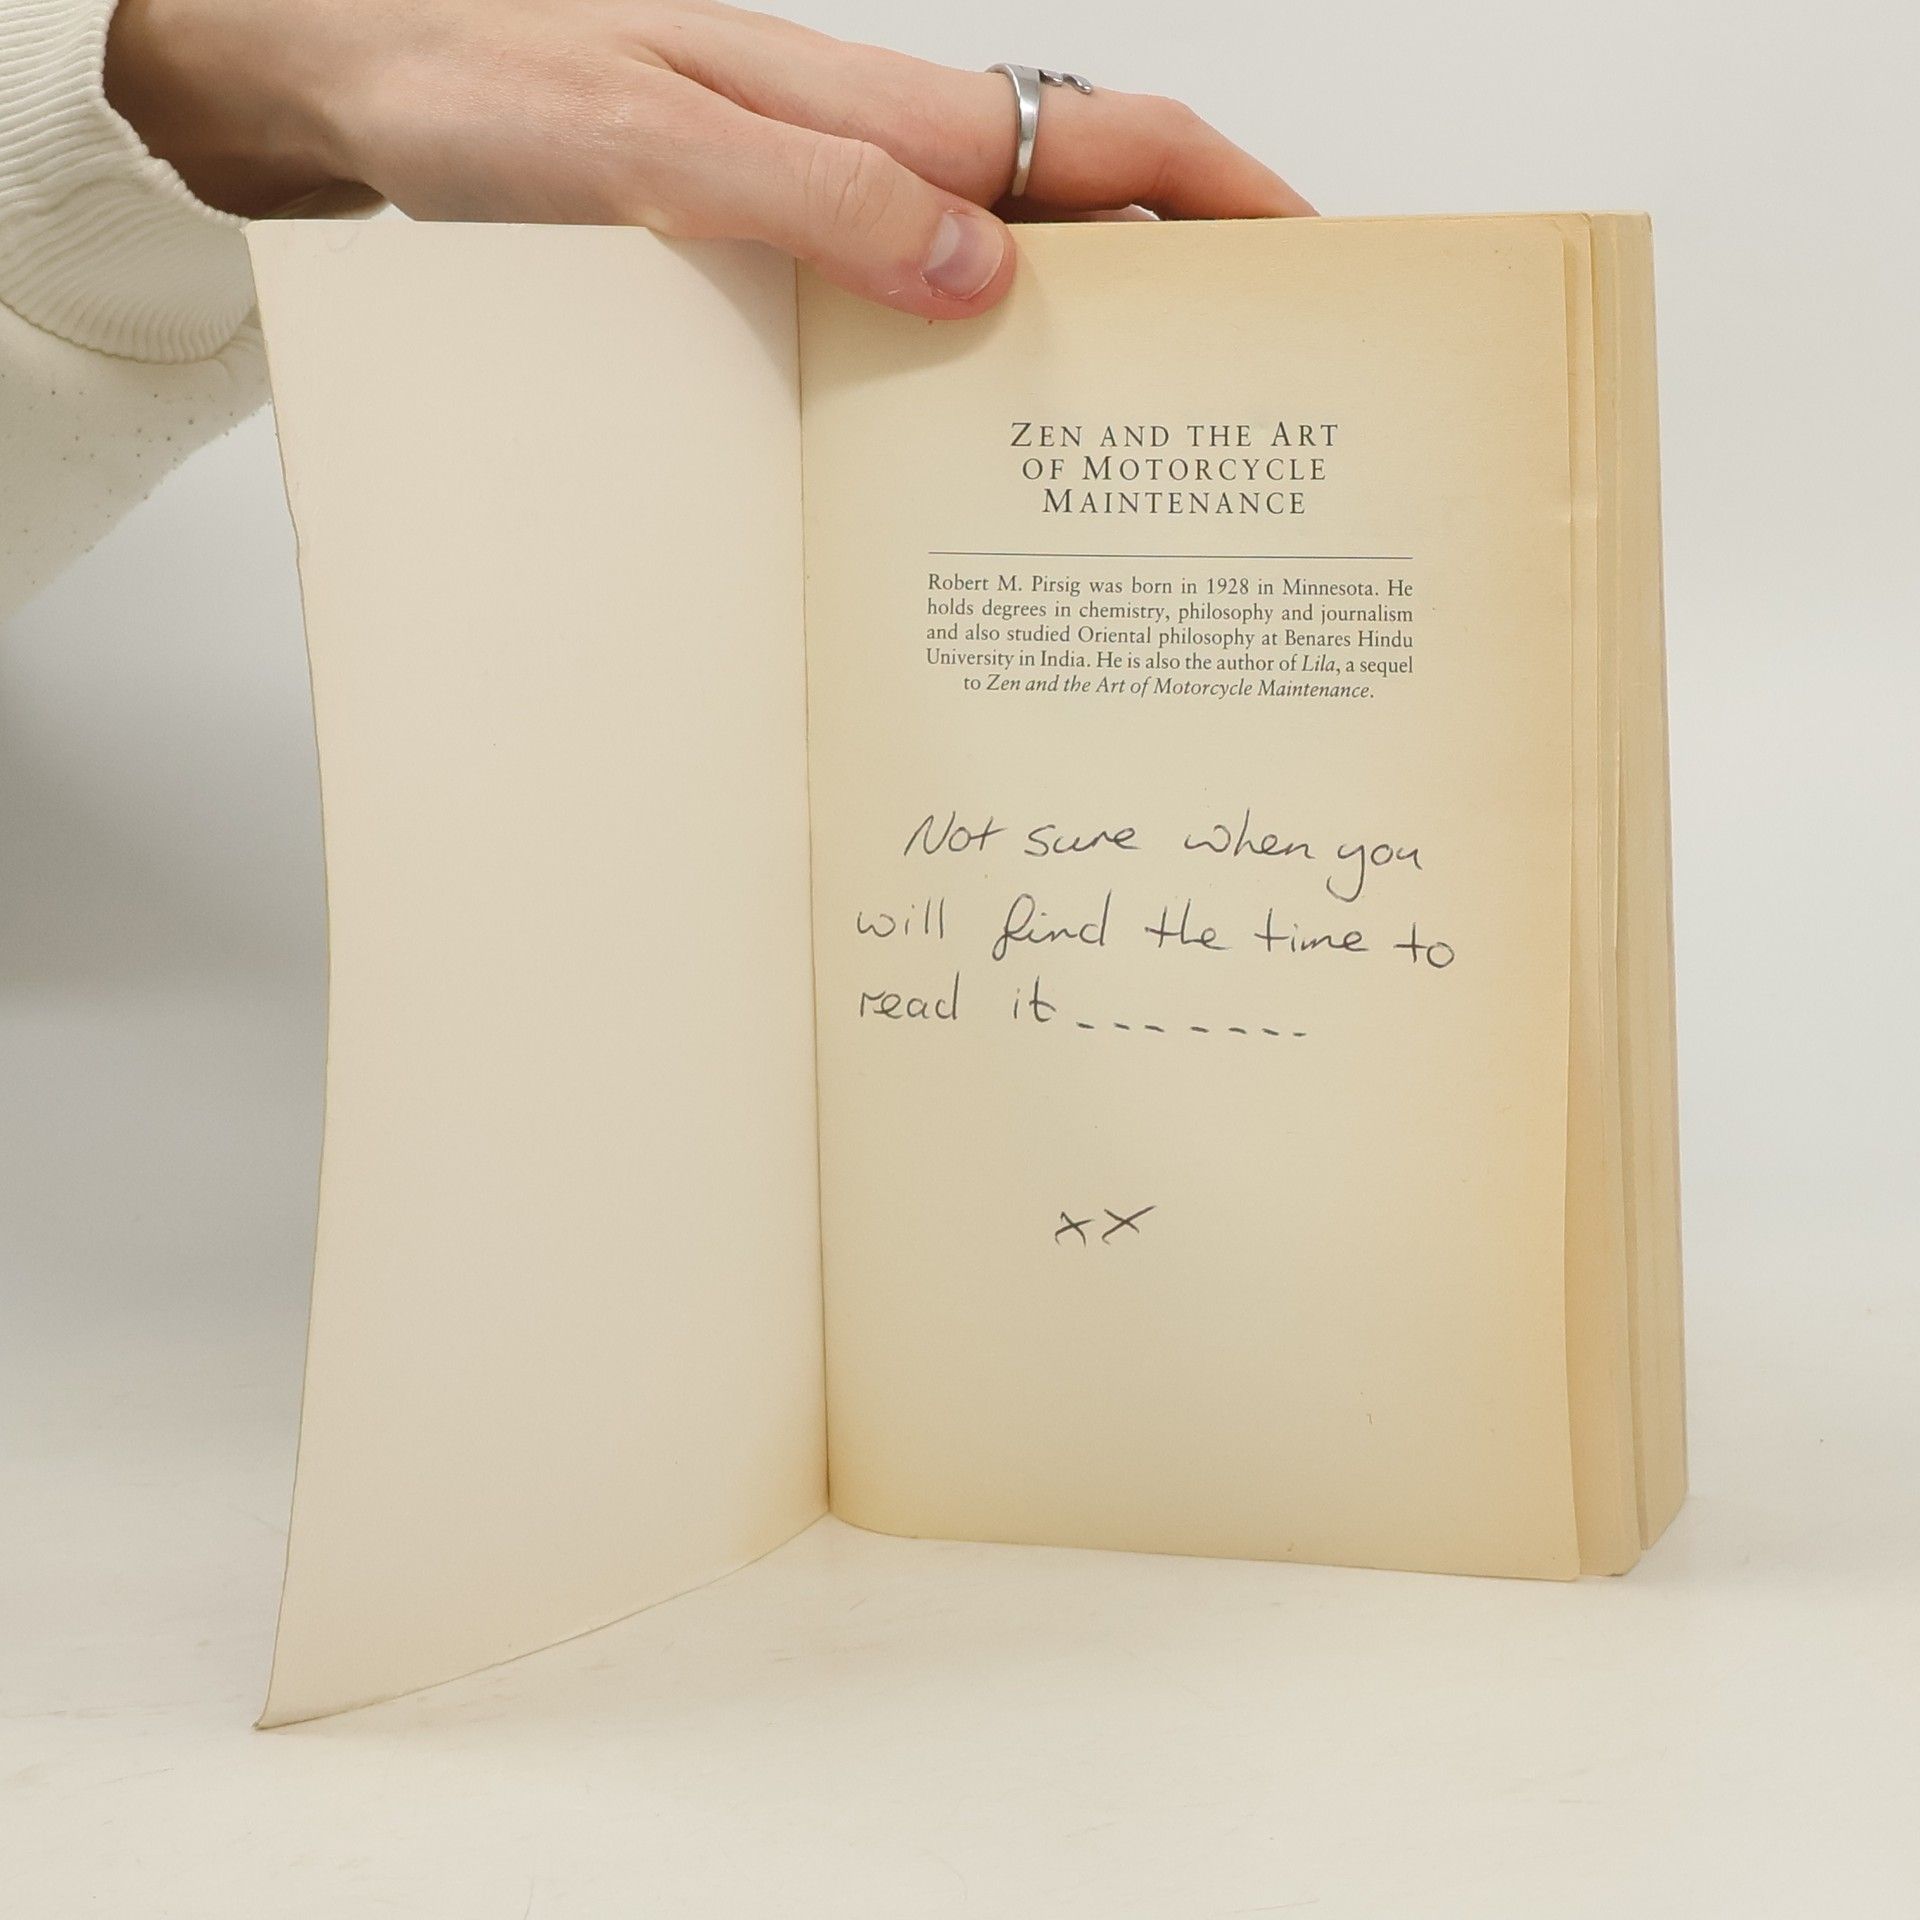 ZEN AND THE ART
OF MOTORCYCLE
MAINTENANCE
Robert M. Pirsig was born in 1928 in Minnesota. He
holds degrees in chemistry, philosophy and journalism
and also studied Oriental philosophy at Benares Hindu
University in India. He is also the author of Lila, a sequel
to Zen and the Art of Motorcycle Maintenance.
Not sure when you
will find the time to
read it _ _ _ _ _ _ _
xx